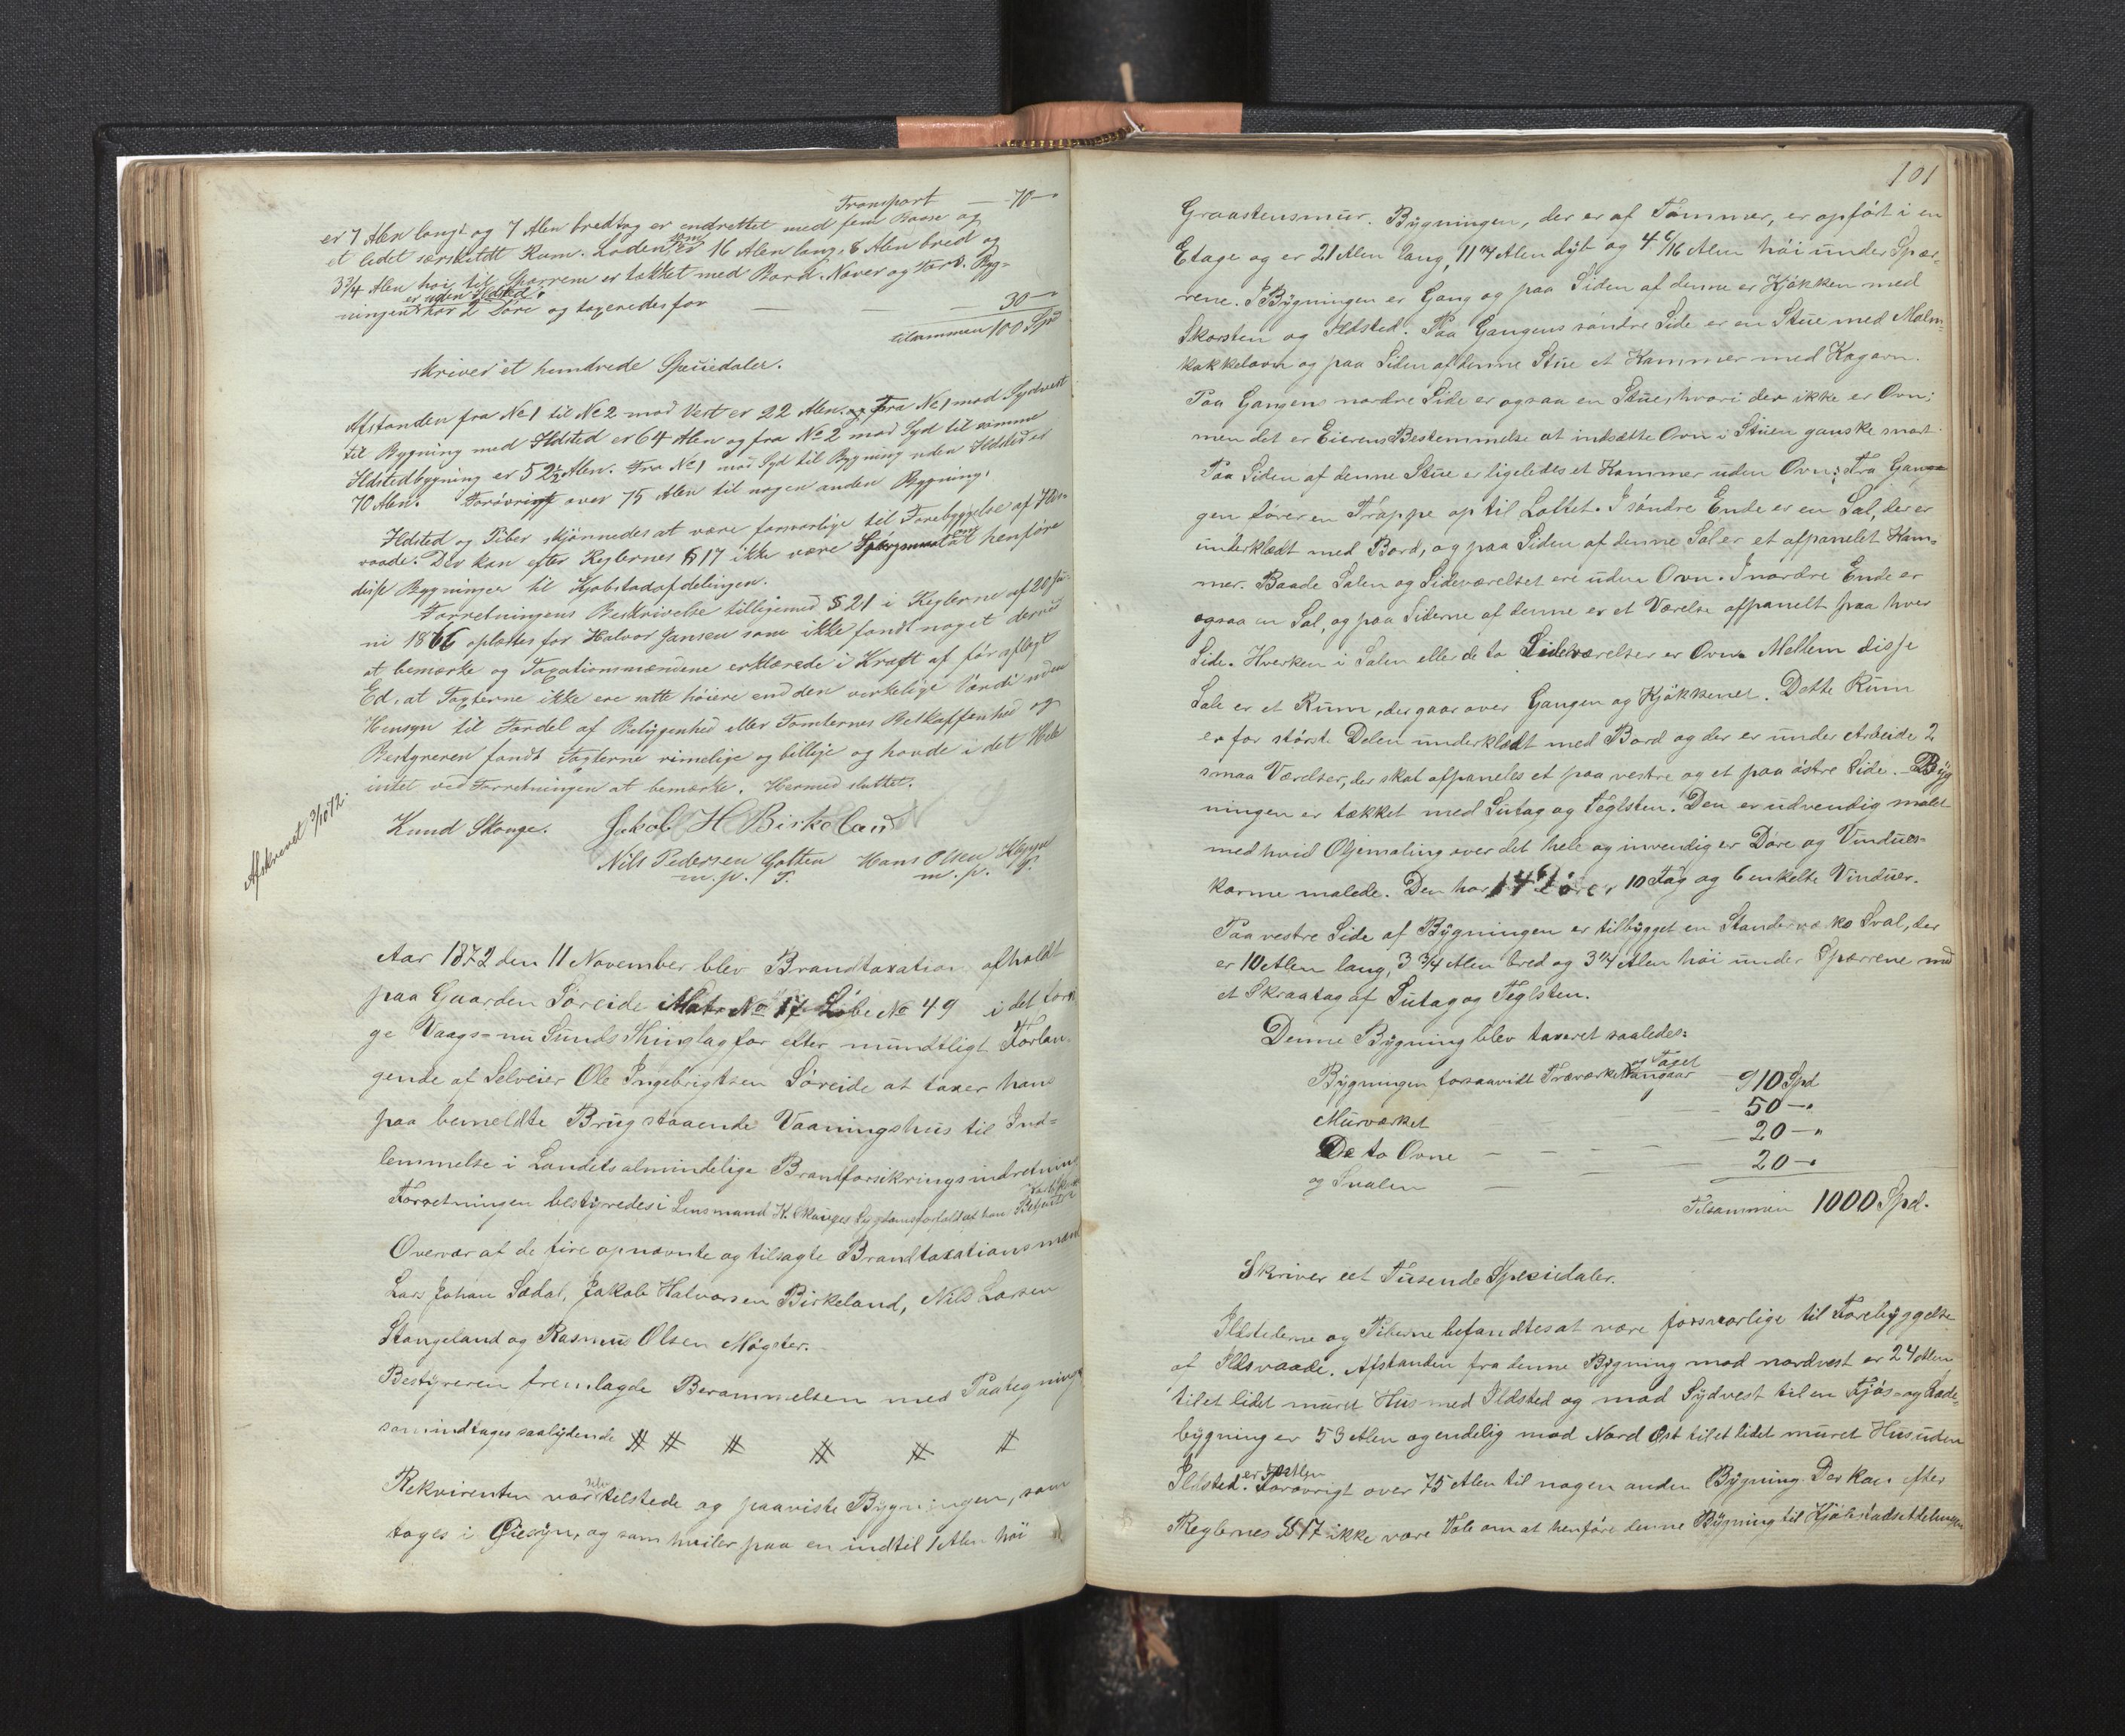 Transport — 70 —
er 7 Alen langt og 7 Alen bredt og er indrettet med fem Baase og
et lidet særskildt Rum. Laden, som er 16 Alen lang, 8 Alen bred og
3 3/4 Alen høi til Sparrene er tækket med Bord, Næver og Torv. Byg-
ningen er uden Ildsted, har 2 Døre og taxeredes for — — 30 —
tilsammen 100 Spd
skriver et hundrede Speciedaler.
Afstanden fra No 1 til No 2 mod Vest er 22 Alen. Fra No 1 mod Sydvest
til Bygning med Ildsted er 64 Alen og fra No 2 mod Syd til samme
Ildstedbygning er 52 1/2 Alen. Fra No 1 mod Syd til Bygning uden Ildsted er
70 Alen. Forøvrigt over 75 Alen til nogen anden Bygning.
Ildsted og Piber skjønnedes at være forsvarlige til Forebyggelse af Ilds-
vaade. Der kan efter Reglernes § 17 ikke være Spørgsmaal om at henføre
disse Bygninger til Kjøbstadafdelingen.
Forretningens Beskrivelse tilligemed § 21 i Reglerne af 20 Ju-
ni 1866 oplæstes for Halvor Jansen som ikke fandt noget derved
at bemærke og Taxationsmændene erklærede i Kraft af før aflagt
Ed, at Taxterne ikke ere satte høiere end den virkelige Værdi uden
Hensyn til Fordel af Beliggenhed eller Tomternes Beskaffenhed og
Bestyreren fandt Taxterne rimelige og billige og havde i det Hele
intet ved Forretningen at bemærke. Hermed sluttet.
Afskrevet 3/10 72.
Knud Skauge. Jakob H Birkeland
Nils Pedersen Gotten Hans Olsen
m. p. P. m. p. P.
Aar 1872 den 11 November blev Brandtaxation afholdt
paa Gaarden Søreide Matr No 17 Løbe No 49 i det
ge Vaags- nu Sunds Thinglag for efter mundtligt Forlan-
gende af Selveier Ole Ingebrigtsen Søreide at taxer hans
paa bemeldte Brug staaende Vaaningshus til Ind-
lemmelse i Landets almindelige Brandforsikringsindretning
Forretningen bestyredes i Lensmand K. Skauges Sygdomsforfald af hans
Overvær af de fire opnævnte og tilsagte Brandtaxationsmænd
Lars Johan Sædal, Jakob Halvorsen Birkeland, Nils Larsen
Stangeland og Rasmus Olsen Møgster.
Bestyreren fremlagde Berammelsen med Paategning
som indtages saalydende # # # # # #
Rekvirenten var selv tilstede og paaviste Bygningen, som
toges i Øiesyn, og som hviler paa en indtil 1 Alen høi
101
Graastensmur. Bygningen, der er af Tømmer, er opført i en
Etage og er 21 Alen lang, 11 1/4 Alen dyb og 4 6/16 Alen høi under Spær-
rene. I Bygningen er Gang og paa Siden af denne er Kjøkken med
Skorsten og Ildsted. Paa Gangens søndre Side er en Stue med Malm-
kakkelovn og paa Siden af denne Stue et Kammer med Kogovn.
Paa Gangens nordre Side er ogsaa en Stue, hvori der ikke er Ovn;
men det er Eierens Bestemmelse at indsætte Ovn i Stuen ganske snart.
Paa Siden af denne Stue er ligeledes et Kammer uden Ovn; Fra Gan-
gen fører en Trappe op til Loftet. I søndre Ende er en Sal, der er
underklædt med Bord, og paa Siden af denne Sal er et afpanelet Kam-
mer. Baade Salen og Sideværelset ere uden Ovn. I nordre Ende er
ogsaa en Sal, og paa Siderne af denne er et Værelse afpanelt paa hver
Side. Hverken i Salen eller de to Sideværelser er Ovn. Mellem disse
Sale er et Rum, der gaar over Gangen og Kjøkkenet. Dette Rum
er for største Delen underklædt med Bord og der er under Arbeide 2
smaa Værelser, der skal afpaneles et paa vestre og et paa østre Side. Byg
ningen er tækket med Sutag og Teglsten. Den er udvendig malet
med hvid Oljemaling over det hele og invendig er Døre og Vindues-
karme malede. Den har 14 Døre, 10 Fag og 6 enkelte Vinduer.
Paa vestre Side af Bygningen er tilbygget en Standerværks Sval, der
er 10 Alen lang, 3 3/4 Alen bred og 3 1/4 Alen høi under Spærrene med
et Skraatag af Sutag og Teglsten.
Denne Bygning blev taxeret saaledes:
Bygningen forsaavidt Træværket og Taget angaar — 910 Spd
Murværket — 50 — "
De to Ovne — — — 20 — "
og Svalen — — 20 — "
Tilsammen 1000 Spd.
Skriver eet Tusende Speciedaler.
Ildstederne og Piberne befandtes at være forsvarlige til Forebyggelse
af Ildsvaade. Afstanden fra denne Bygning mod nordvest er 24 Alen
til et lidet muret Hus med Ildsted og mod Sydvest til en Fjøs- og Lade-
bygning er 53 Alen og endelig mod Nord Øst til et lidet muret Hus uden
Ildsted er Alen. Forøvrigt over 75 Alen til nogen anden Bygning. Der kan efter
Reglernes § 17 ikke være Tale om at henføre denne Bygning til Kjøbstadsafdelingen